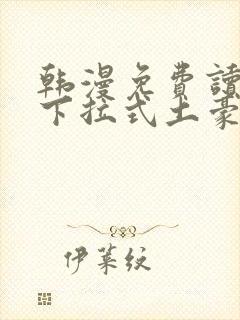 韩漫免费讀
下拉式土豪
伊莱绞